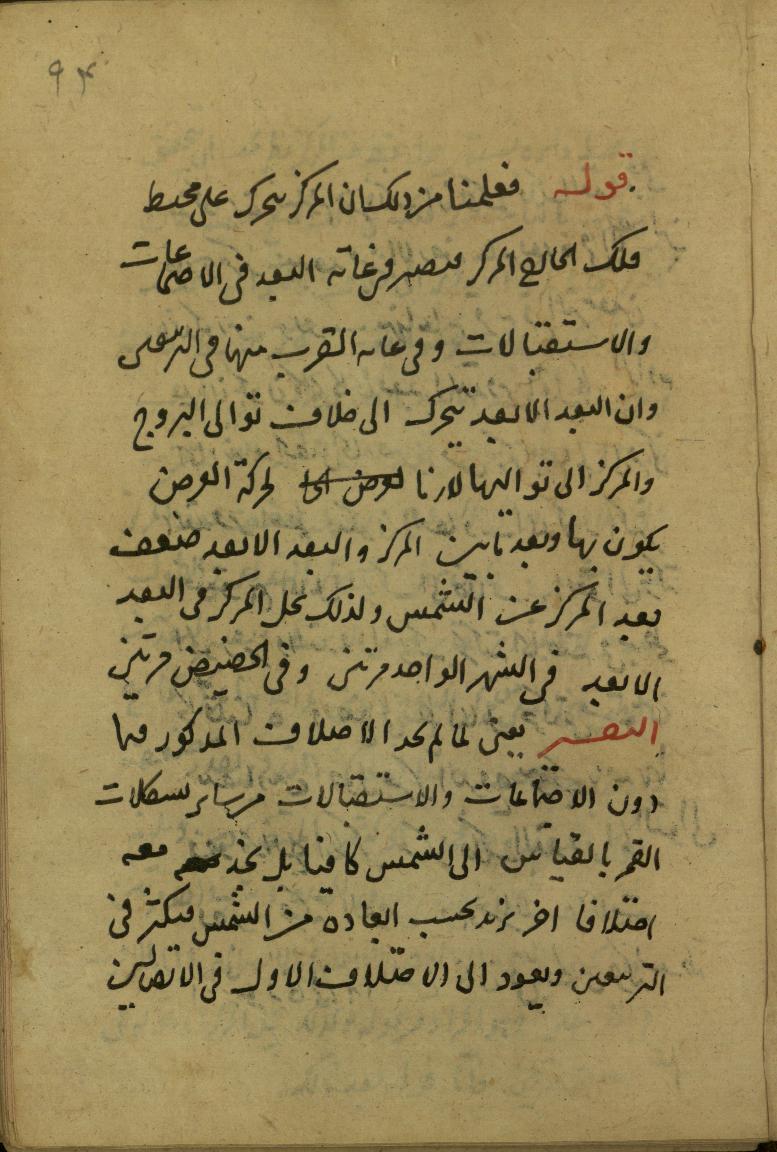 ٩٣
قوله فعلمنا من ذلك ان المركز يتحرك على محيط
فلك الخارج المركز فيصير في غاية البعد في الاجتماعات
والاستقبالات وفي غاية القرب منها في التربيعين
وان البعد الابعد يتحرك الى خلاف توالى البروج
والمركز الى تواليها لحركة العرض
يكون بها وبعد ما بين المركز والبعد الابعد ضعف
بعد المركز عن الشمس ولذلك يحل المركز في البعد
الابعد في الشهر الواحد مرتين وفي الحضيض مرتين
التفسير يعني لما لم نجد الاختلاف المذكور فيما
دون الاجتماعات والاستقبالات من سائر تشكلات
القمر بالقياس الى الشمس كافيا بل نجد معه
اختلافا اخر يزيد بحسب ابعاده من الشمس فيكثر في
التربيعين ويعود الى الاختلاف الاول في الاتصالين